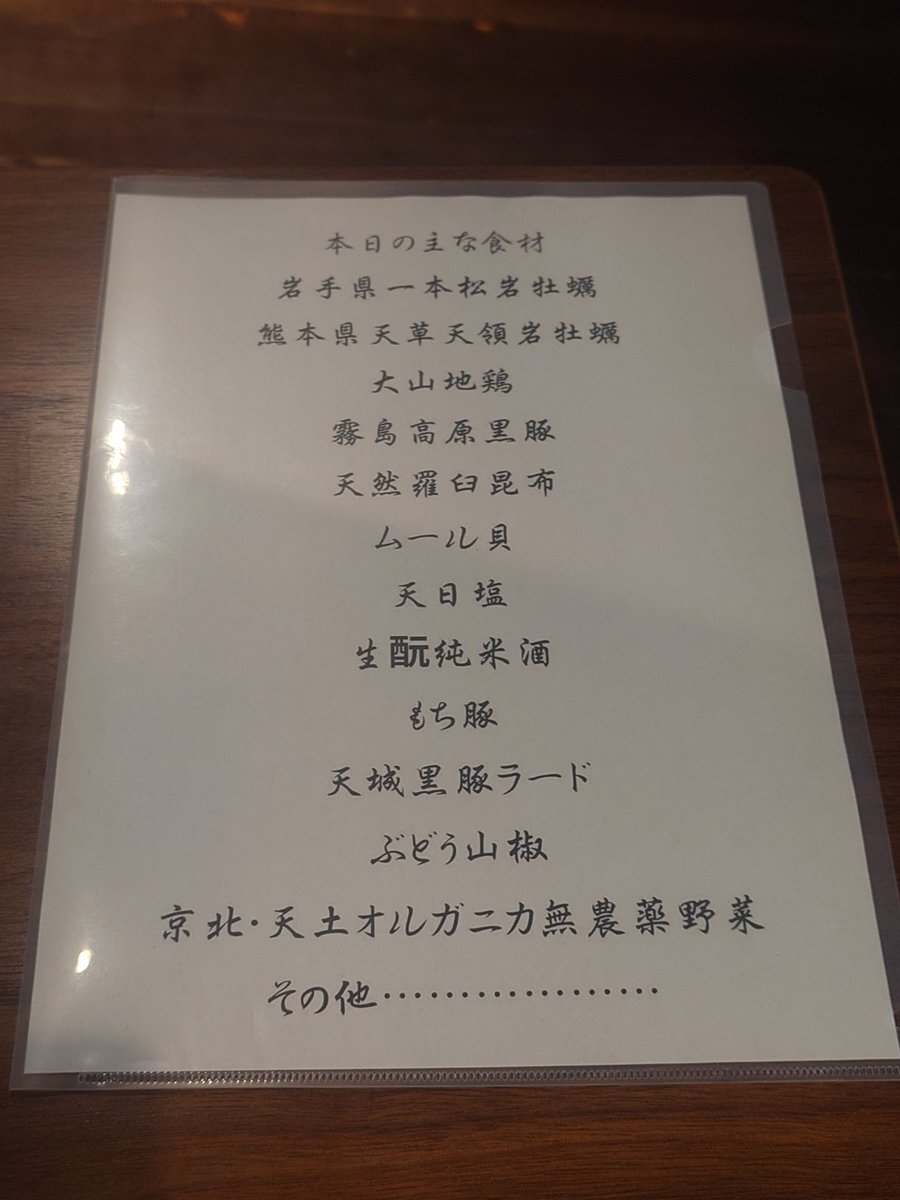 本日の主な食材
岩手県一本松岩牡蠣
熊本県天草天領岩牡蠣
大山地鶏
霧島高原黒豚
天然羅臼昆布
ムール貝
天日塩
生酛純米酒
もち豚
天城黒豚ラード
ぶどう山椒
京北・天土オルガニカ無農薬野菜
その他・・・・・・・・・・・・・・・・・・